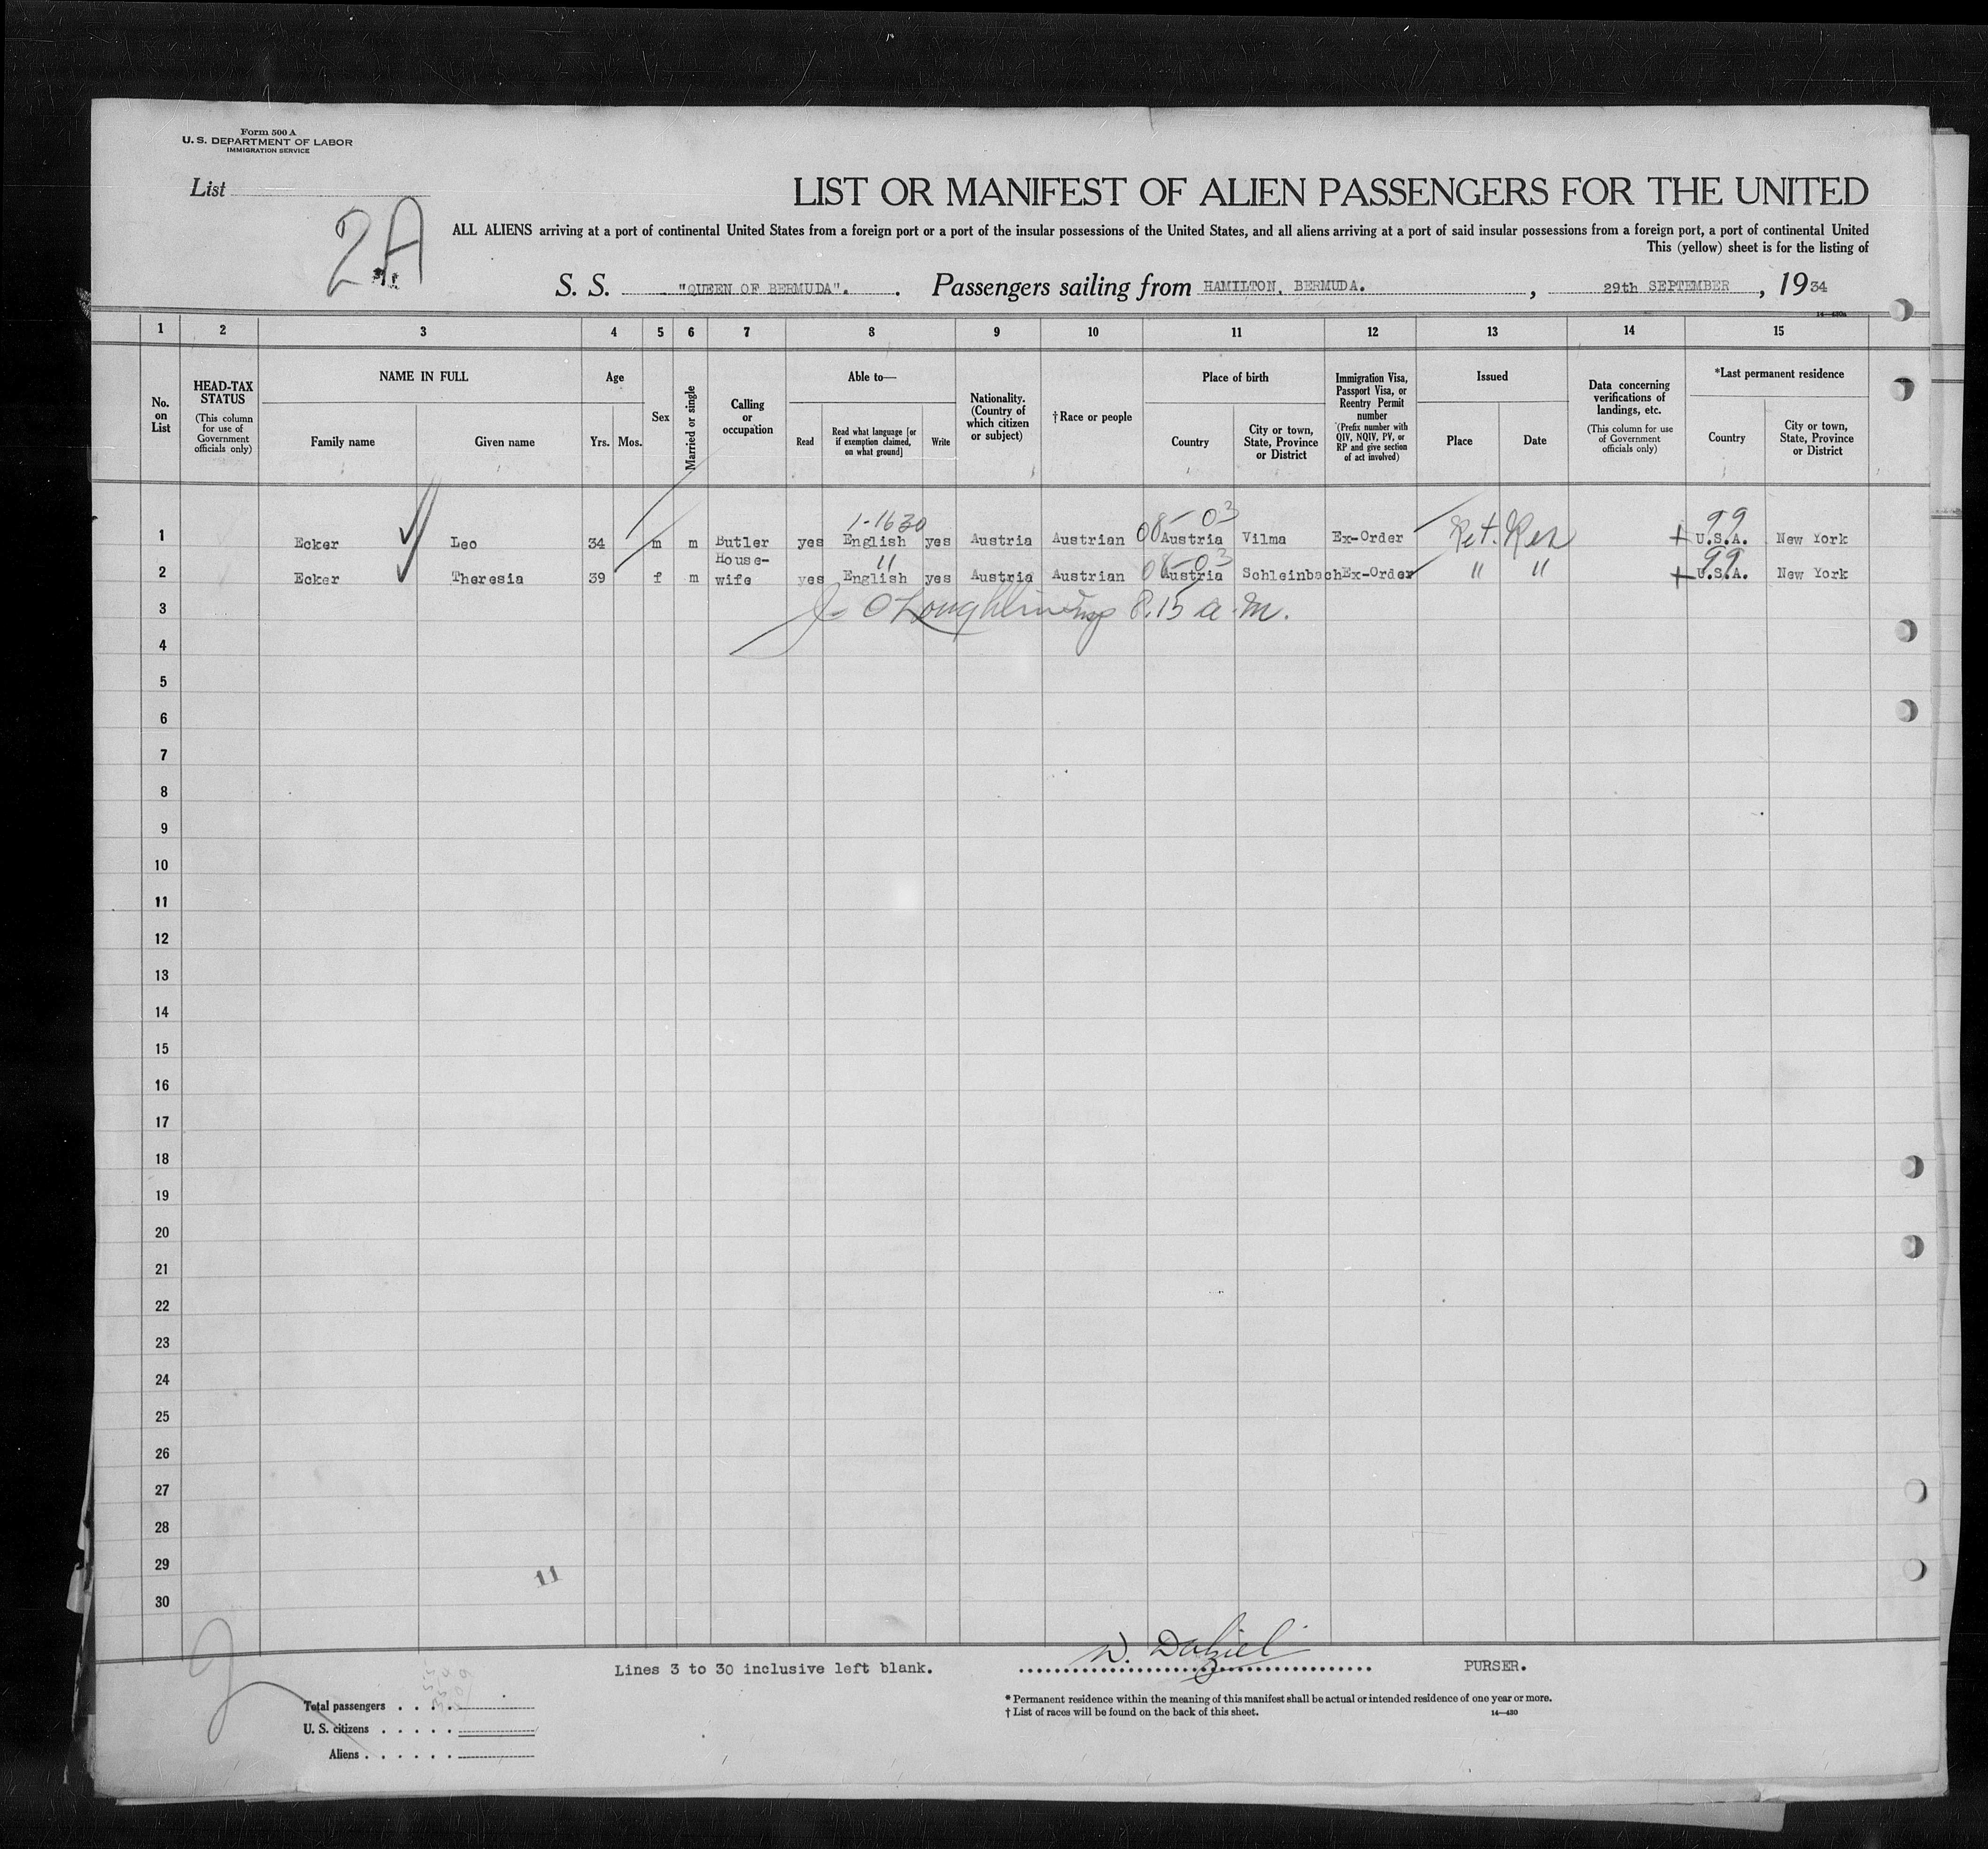 Form 500 A
U. S. DEPARTMENT OF LABOR
IMMIGRATION SERVICE
List
2A
LIST OR MANIFEST OF ALIEN PASSENGERS FOR THE UNITED
ALL ALIENS arriving at a port of continental United States from a foreign port or a port of the insular possessions of the United States, and all aliens arriving at a port of said insular possessions from a foreign port, a port of continental United
This (yellow) sheet is for the listing of
S. S. "QUEEN OF BERMUDA". . Passengers sailing from HAMILTON, BERMUDA. , 29th SEPTEMBER , 19 34
14—430a
1 2 3 4 5 6 7 8 9 10 11 12 13 14 15
No. on List
HEAD-TAX STATUS (This column for use of Government officials only)
NAME IN FULL
Family name Given name
Age
Yrs. Mos.
Sex
Married or single
Calling or occupation
Able to—
Read Read what language [or if exemption claimed, on what ground] Write
Nationality. (Country of which citizen or subject)
† Race or people
Place of birth
Country City or town, State, Province or District
Immigration Visa, Passport Visa, or Reentry Permit number (Prefix number with QIV, NQIV, PV, or RP and give section of act involved)
Issued
Place Date
Data concerning verifications of landings, etc. (This column for use of Government officials only)
*Last permanent residence
Country City or town, State, Province or District
1-1630 08-03 99
1 Ecker Leo 34 m m Butler yes English yes Austria Austrian Austria Vilma Ex-Order Ret. Res U.S.A. New York
11 08-03 99
2 Ecker Theresia 39 f m House-wife yes English yes Austria Austrian Austria Schleinbach Ex-Order " " U.S.A. New York
3 J. O'Loughlin Insp 8.15 a.m.
4
5
6
7
8
9
10
11
12
13
14
15
16
17
18
19
20
21
22
23
24
25
26
27
28
29
11
30
2
Lines 3 to 30 inclusive left blank. W. Dalziel PURSER.
Total passengers
U. S. citizens
Aliens
* Permanent residence within the meaning of this manifest shall be actual or intended residence of one year or more.
† List of races will be found on the back of this sheet. 14—430